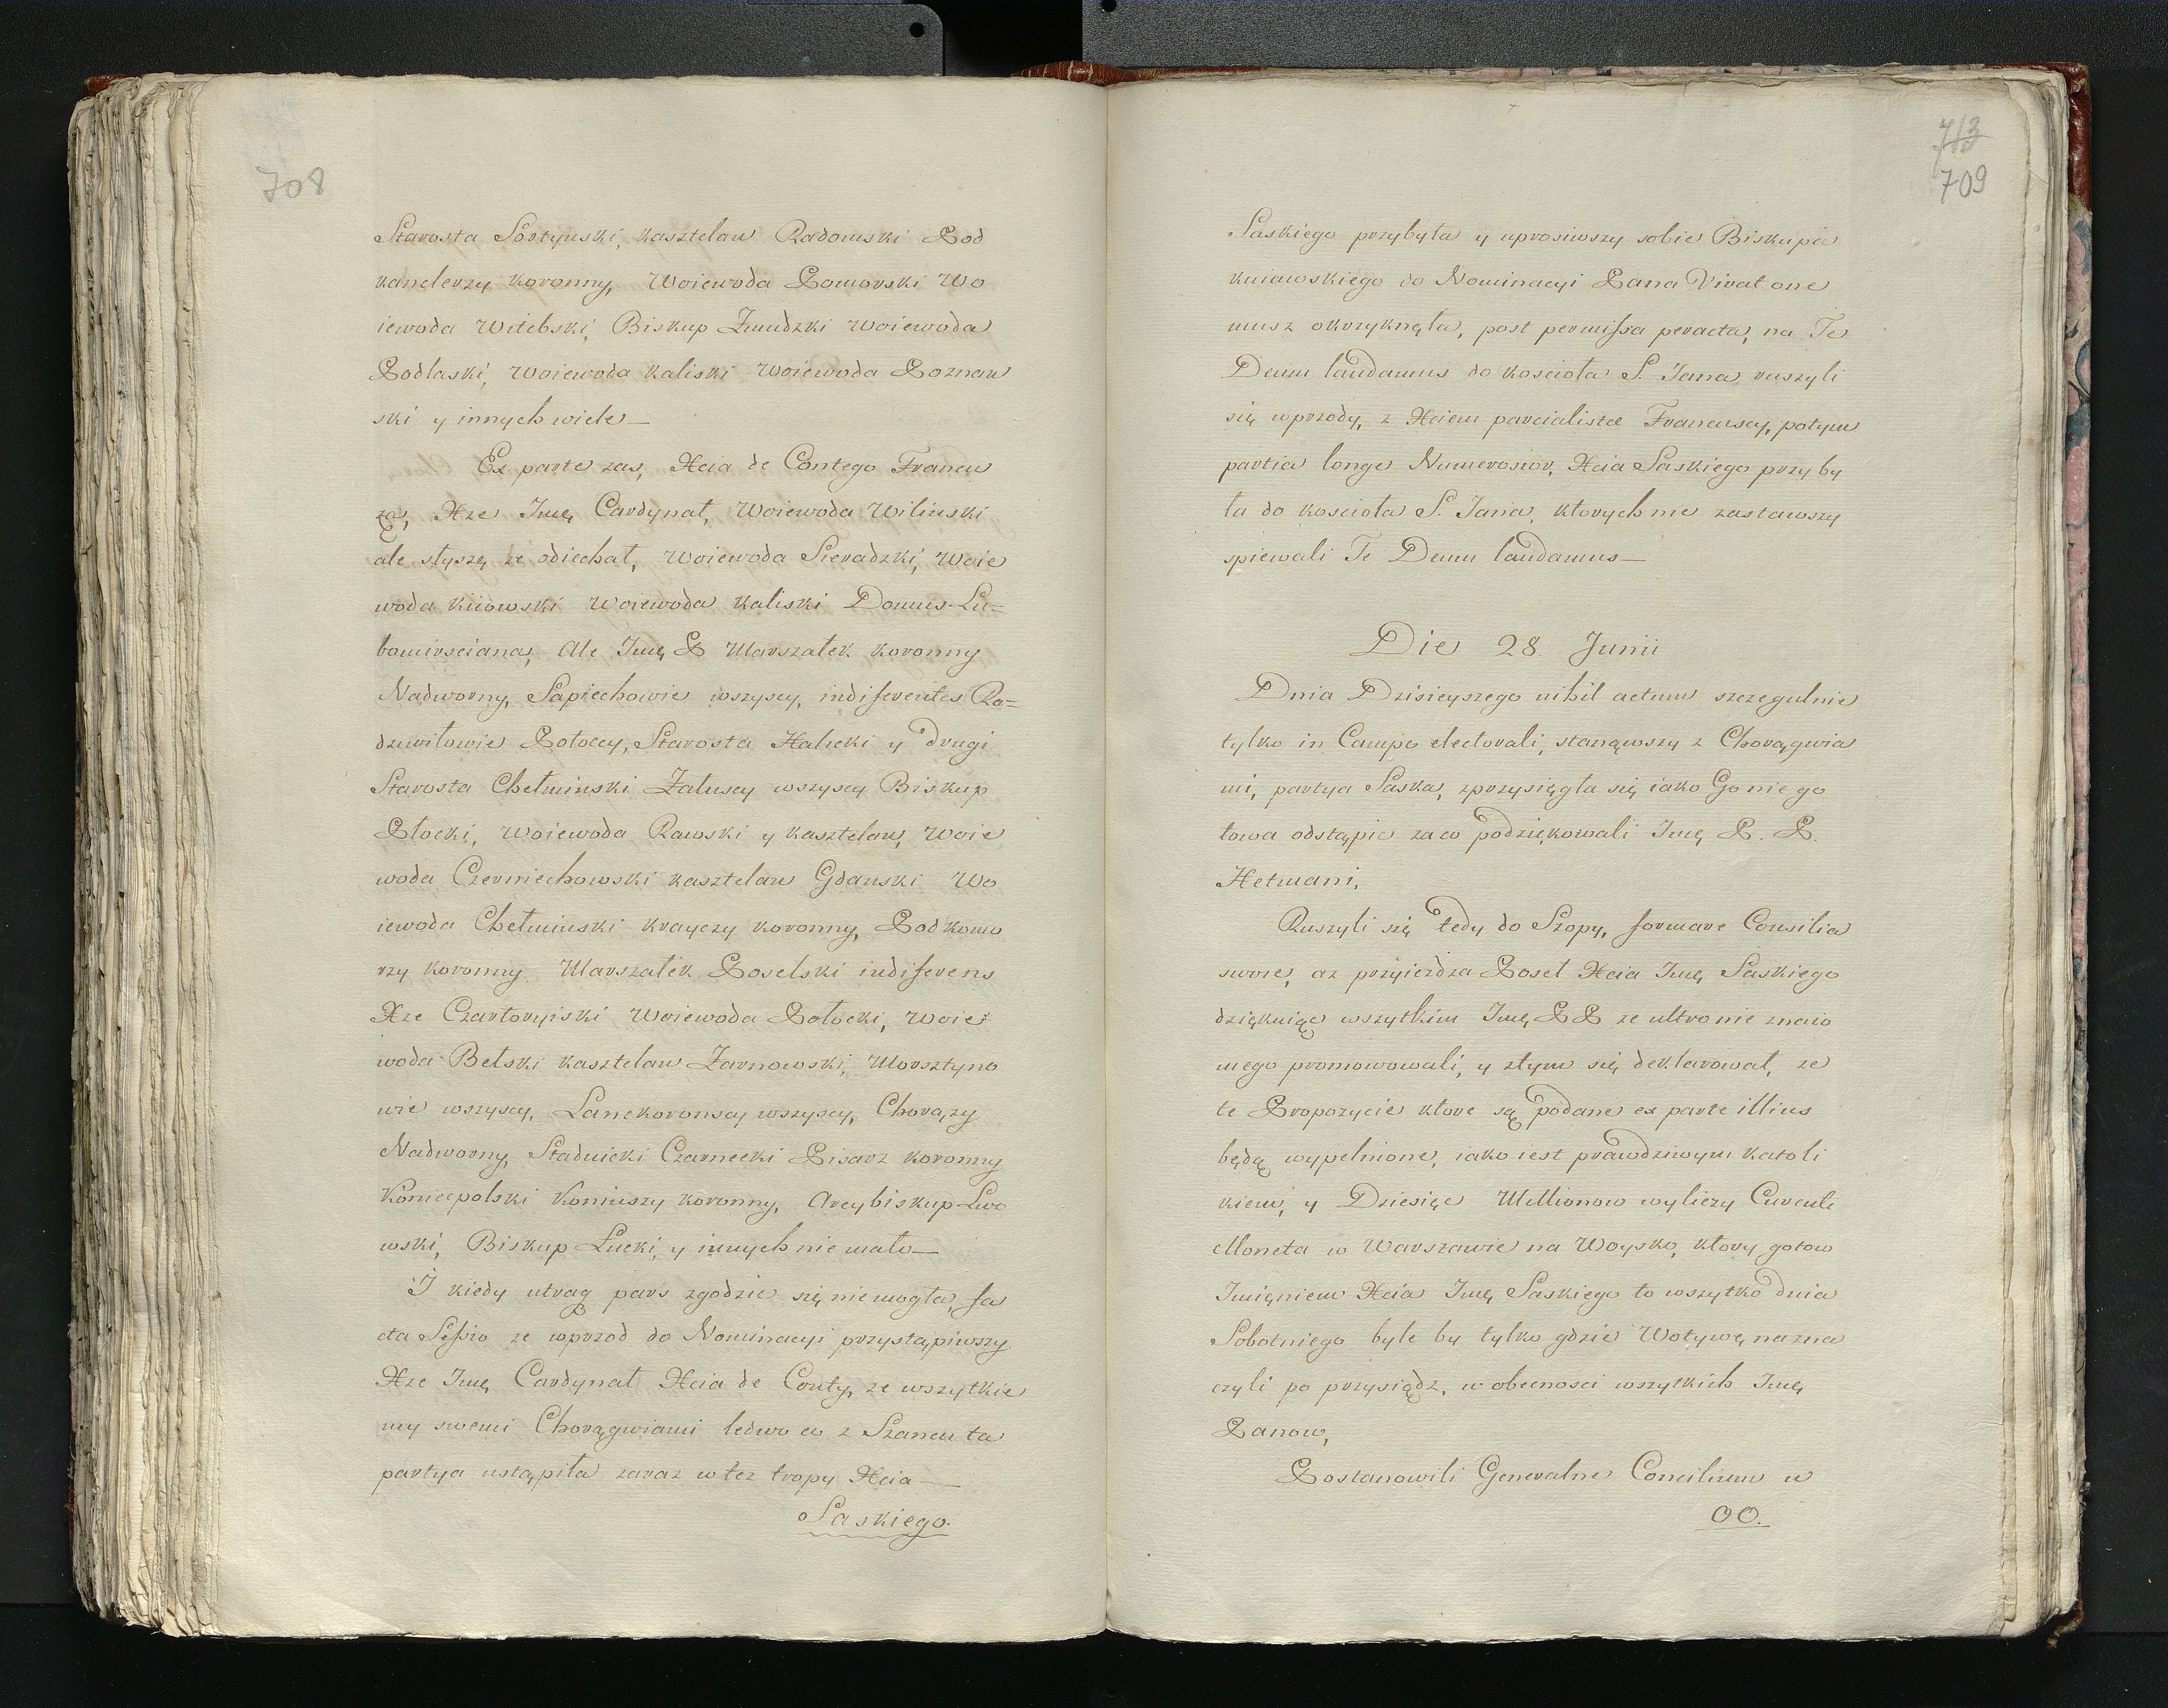 708
Starosta Sortynski, kasztelan Radomski Pod
kanclerzy koronny, Woiewoda Pomorski Wo
iewoda Witebski, Biskup Zmudzki Woiewoda
Podlaski, Woiewoda kaliski Woiewoda Poznan
ski y innych wiele—
Ex parte zas, Xcia de Contego Francu
za, Xze Jmę Cardynał, Woiewoda Wilinski
ale słyszę ze odiechał, Woiewoda Sieradzki, Woie
woda kiiowski Woiewoda kaliski Domus Lu=
bomirsciana, Ale Jmę P Marszałek koronny
Nadworny, Sapiechowie wszyscy, indiferentes Ra=
dziwiłowie Potoccy, Starosta Halicki y drugi
Starosta Chełminski Załuscy wszyscy Biskup
Płocki, Woiewoda Rawski y kasztelan, Woie
woda Czerniechowski kasztelan Gdanski Wo
iewoda Chełminski krayczy koronny, Podkomo
rzy koronny Marszałek Poselski indiferens
Xze Czartoryiski Woiewoda Połocki, Woie
woda Betski kasztelan Żarnowski, Morsztyno
wie wszyscy, Lanckoronscy wszyscy, Chorązy
Nadworny, Stadnicki Czarnecki Pisarz koronny
Koniecpolski Koniuszy koronny, Arcybiskup Lwo
wski, Biskup Łucki, y innych nie mało—
I kiedy utraq pars zgodzic się nie mogła, fa
cta Sessio ze wprzod do Nominacyi przystąpiwszy
Xze Jmę Cardynał Xcia de Conty, ze wszytkie
my swemi Chorągwiami ledwo co z Szancu ta
partya ustąpiła zaraz w tez tropy Xcia—
Saskiego.
713
709
Saskiego przybyła y uprosiwszy sobie Biskupa
kuiawskiego do Nominacyi Pana Vivat one
musz okrzyknęła, post permissa peracta, na Te
Deum laudamus do koscioła S. Jana ruszyli
się wprzody, z Xciem parcialistæ Francuscy, potym
partia longe Numerosior, Xcia Saskiego przyby
ła do koscioła S. Jana, ktorych nie zastawszy
spiewali Te Deum laudamus—
Die 28 Junii
Dnia Dzisieyszego nihil actum szczegulnie
tylko in Campo electorali, stanąwszy z Chorągwia
mi, partya Saska, zprzysięgła się iako Go nie go
towa odstąpic za co podziękowali Jmę P. P.
Hetmani,
Ruszyli się tedy do Szopy, formare Consilia
swoie, az przyiezdza Poseł Xcia Jmę Saskiego
dziękuiąc wszytkim Jmę PP ze ultro nie znaio
mego promowowali, y z tym się deklarował, ze
te Propozycie ktore są podane ex parte illius
będą wypełnione, iako iest prawdziwym katoli
kiem, y Dziesięc Millionow wyliczy Curenti
Moneta w Warszawie na Woysko, ktory gotow
Imięniem Xcia Jmę Saskiego to wszytko dnia
Sobotniego byle by tylko gdzie Wotywę nazna
czyli po przysiądz, w obecnosci wszytkich Jmę
Panow,
Postanowili Generalne Concilium w
OO.